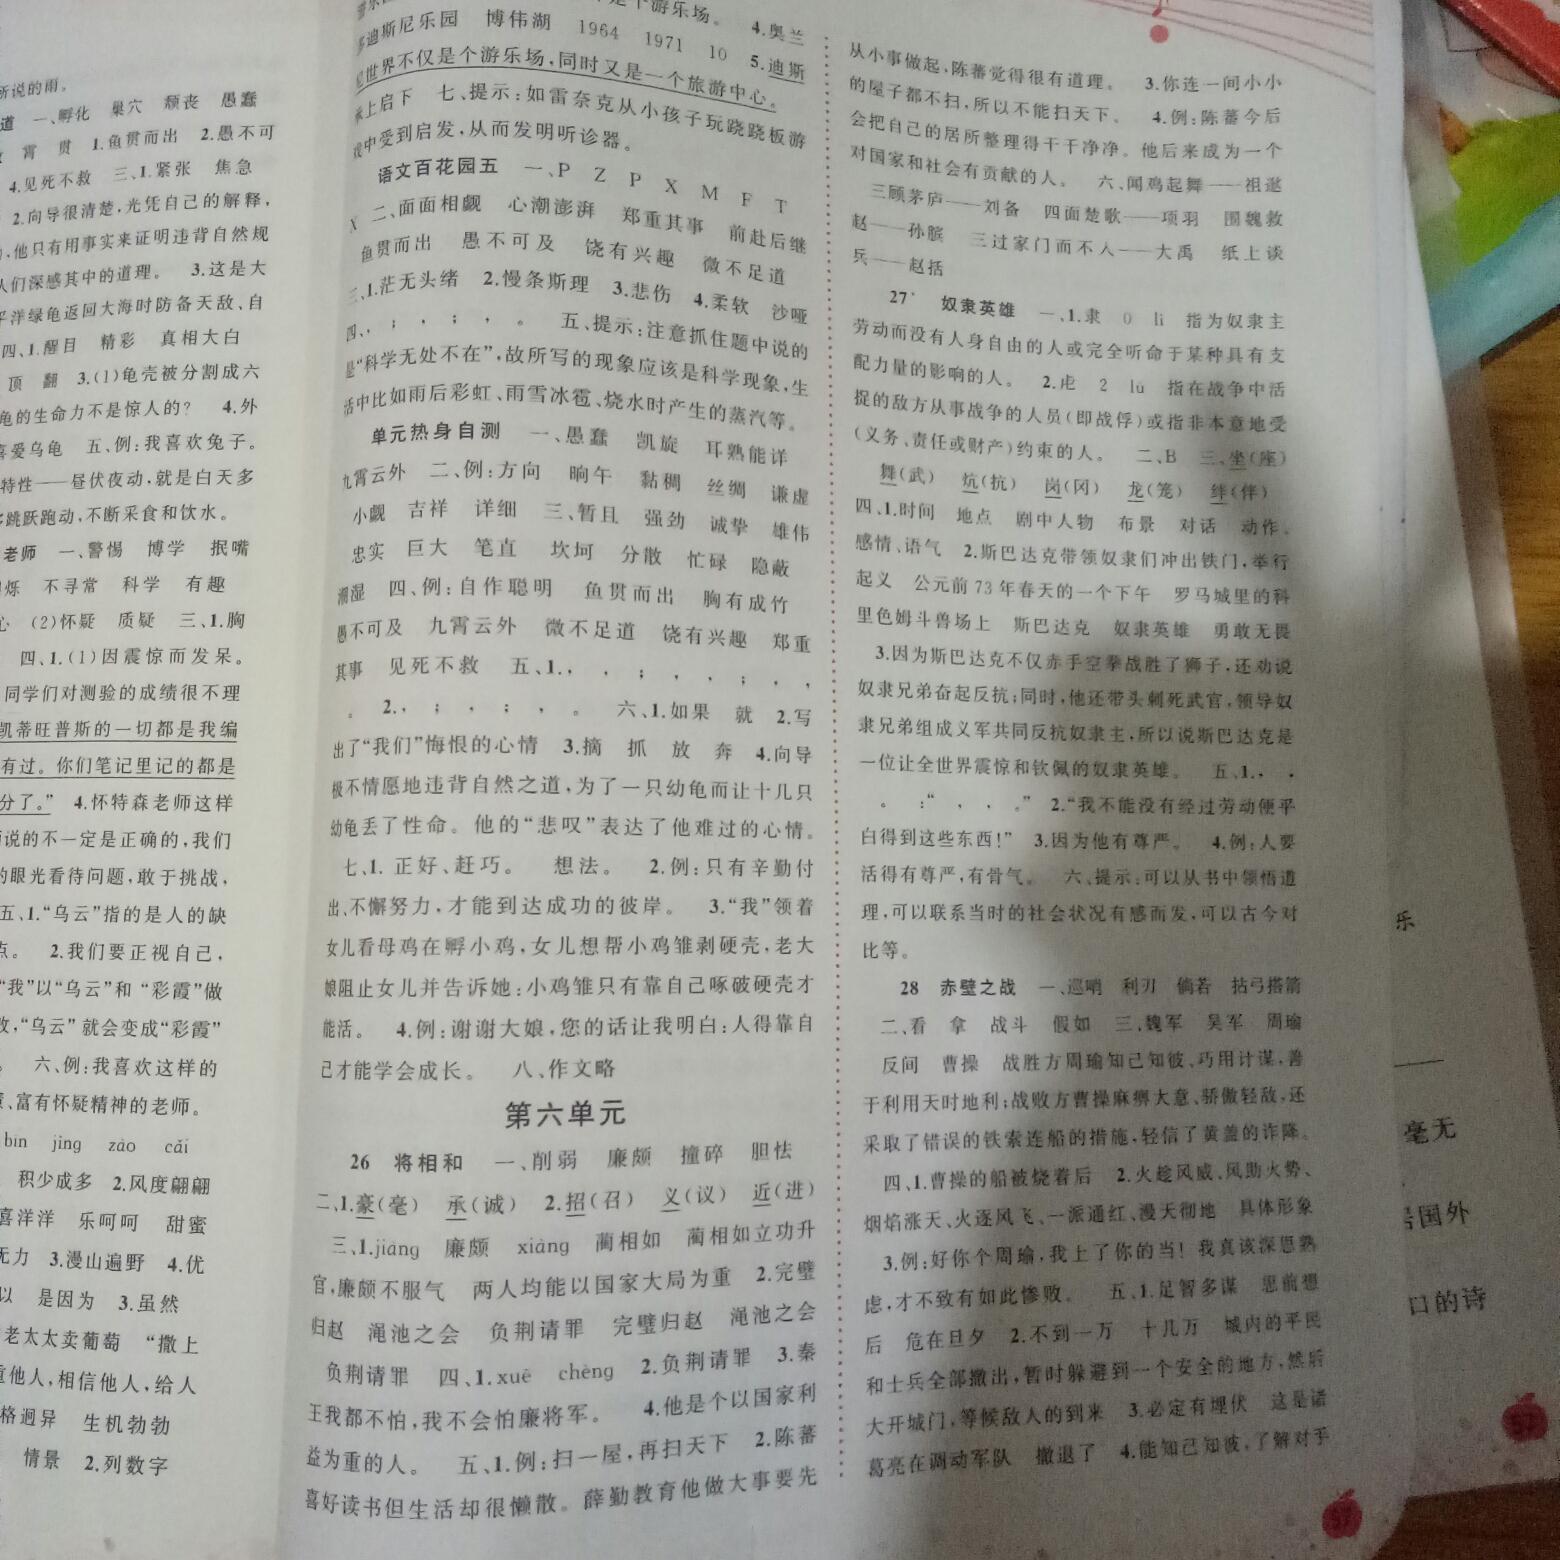 所说的雨。
道 一、孵化 巢穴 颓丧 愚蠢
霄 贯 1.鱼贯而出 2.愚不可
4.见死不救 三、1.紧张 焦急
2.向导很清楚,光凭自己的解释,
,他只有用事实来证明违背自然规
人们深感其中的道理。 3.这是大
平洋绿龟返回大海时防备天敌、自
四、1.醒目 精彩 真相大白
顶 翻 3.(1)龟壳被分割成六
龟的生命力不是惊人的? 4.外
喜爱乌龟 五、例:我喜欢兔子。
特性——昼伏夜动,就是白天多
跳跃跑动,不断采食和饮水。
老师 一、警惕 博学 抿嘴
烁 不寻常 科学 有趣
心 (2)怀疑 质疑 三、1.胸
四、1.(1)因震惊而发呆。
同学们对测验的成绩很不理
凯蒂旺普斯的一切都是我编
有过。你们笔记里记的都是
分了。” 4.怀特森老师这样
师说的不一定是正确的,我们
的眼光看待问题,敢于挑战,
五、1.“乌云”指的是人的缺
点。 2.我们要正视自己,
“我”以“乌云”和“彩霞”做
“乌云”就会变成“彩霞”
。 六、例:我喜欢这样的
、富有怀疑精神的老师。
bīn jīng zào cǎi
积少成多 2.风度翩翩
喜洋洋 乐呵呵 甜蜜
无力 3.漫山遍野 4.优
以 是因为 3.虽然
老太太卖葡萄 “撒上
重他人,相信他人,给人
格迥异 生机勃勃
情景 2.列数字
个游乐场。 4.奥兰
多迪斯尼乐园 博伟湖 1964 1971 10 5.迪斯
尼世界不仅是个游乐场,同时又是一个旅游中心。
承上启下 七、提示:如雷奈克从小孩子玩跷跷板游
戏中受到启发,从而发明听诊器。
语文百花园五 一、P Z P X M F T
X 二、面面相觑 心潮澎湃 郑重其事 前赴后继
鱼贯而出 愚不可及 饶有兴趣 微不足道
三、1.茫无头绪 2.慢条斯理 3.悲伤 4.柔软 沙哑
四、, ; , ; , 。 五、提示:注意抓住题中说的
是“科学无处不在”,故所写的现象应该是科学现象,生
活中比如雨后彩虹、雨雪冰雹、烧水时产生的蒸汽等。
单元热身自测 一、愚蠢 凯旋 耳熟能详
九霄云外 二、例:方向 晌午 黏稠 丝绸 谦虚
小觑 吉祥 详细 三、暂且 强劲 诚挚 雄伟
忠实 巨大 笔直 坎坷 分散 忙碌 隐蔽
潮湿 四、例:自作聪明 鱼贯而出 胸有成竹
愚不可及 九霄云外 微不足道 饶有兴趣 郑重
其事 见死不救 五、1., , ; , ; , ,
。 2., ; , ; , 。 六、1.如果 就 2.写
出了“我们”悔恨的心情 3.摘 抓 放 奔 4.向导
极不情愿地违背自然之道,为了一只幼龟而让十几只
幼龟丢了性命。他的“悲叹”表达了他难过的心情。
七、1. 正好、赶巧。 想法。 2.例:只有辛勤付
出、不懈努力,才能到达成功的彼岸。 3.“我”领着
女儿看母鸡在孵小鸡,女儿想帮小鸡雏剥硬壳,老大
娘阻止女儿并告诉她:小鸡雏只有靠自己啄破硬壳才
能活。 4.例:谢谢大娘,您的话让我明白:人得靠自
己才能学会成长。 八、作文略
第六单元
26 将相和 一、削弱 廉颇 撞碎 胆怯
二、1.豪(毫) 承(诚) 2.招(召) 义(议) 近(进)
三、1.jiāng 廉颇 xiàng 蔺相如 蔺相如立功升
官,廉颇不服气 两人均能以国家大局为重 2.完璧
归赵 渑池之会 负荆请罪 完璧归赵 渑池之会
负荆请罪 四、1.xuē chéng 2.负荆请罪 3.秦
王我都不怕,我不会怕廉将军。 4.他是个以国家利
益为重的人。 五、1.例:扫一屋,再扫天下 2.陈蕃
喜好读书但生活却很懒散。薛勤教育他做大事要先
从小事做起,陈蕃觉得很有道理。 3.你连一间小小
的屋子都不扫,所以不能扫天下。 4.例:陈蕃今后
会把自己的居所整理得干干净净。他后来成为一个
对国家和社会有贡献的人。 六、闻鸡起舞——祖逖
三顾茅庐——刘备 四面楚歌——项羽 围魏救
赵——孙膑 三过家门而不入——大禹 纸上谈
兵——赵括
27* 奴隶英雄 一、1.隶 0 lì 指为奴隶主
劳动而没有人身自由的人或完全听命于某种具有支
配力量的影响的人。 2.虍 2 lǔ 指在战争中活
捉的敌方从事战争的人员(即战俘)或指非本意地受
(义务、责任或财产)约束的人。 二、B 三、坐(座)
舞(武) 炕(抗) 岗(冈) 龙(笼) 绊(伴)
四、1.时间 地点 剧中人物 布景 对话 动作、
感情、语气 2.斯巴达克带领奴隶们冲出铁门,举行
起义 公元前73年春天的一个下午 罗马城里的科
里色姆斗兽场上 斯巴达克 奴隶英雄 勇敢无畏
3.因为斯巴达克不仅赤手空拳战胜了狮子,还劝说
奴隶兄弟奋起反抗;同时,他还带头刺死武官,领导奴
隶兄弟组成义军共同反抗奴隶主,所以说斯巴达克是
一位让全世界震惊和钦佩的奴隶英雄。 五、1., ,
。 :“ , , 。” 2.“我不能没有经过劳动便平
白得到这些东西!” 3.因为他有尊严。 4.例:人要
活得有尊严,有骨气。 六、提示:可以从书中领悟道
理,可以联系当时的社会状况有感而发,可以古今对
比等。
28 赤壁之战 一、巡哨 利刃 倘若 拈弓搭箭
二、看 拿 战斗 假如 三、魏军 吴军 周瑜
反间 曹操 战胜方周瑜知己知彼、巧用计谋,善
于利用天时地利;战败方曹操麻痹大意、骄傲轻敌,还
采取了错误的铁索连船的措施,轻信了黄盖的诈降。
四、1.曹操的船被烧着后 2.火趁风威、风助火势、
烟焰涨天、火逐风飞、一派通红、漫天彻地 具体形象
3.例:好你个周瑜,我上了你的当!我真该深思熟
虑,才不致有如此惨败。 五、1.足智多谋 思前想
后 危在旦夕 2.不到一万 十几万 城内的平民
和士兵全部撤出,暂时躲避到一个安全的地方,然后
大开城门,等候敌人的到来 3.必定有埋伏 这是诸
葛亮在调动军队 撤退了 4.能知己知彼,了解对手
乐
毫无
国外
口的诗